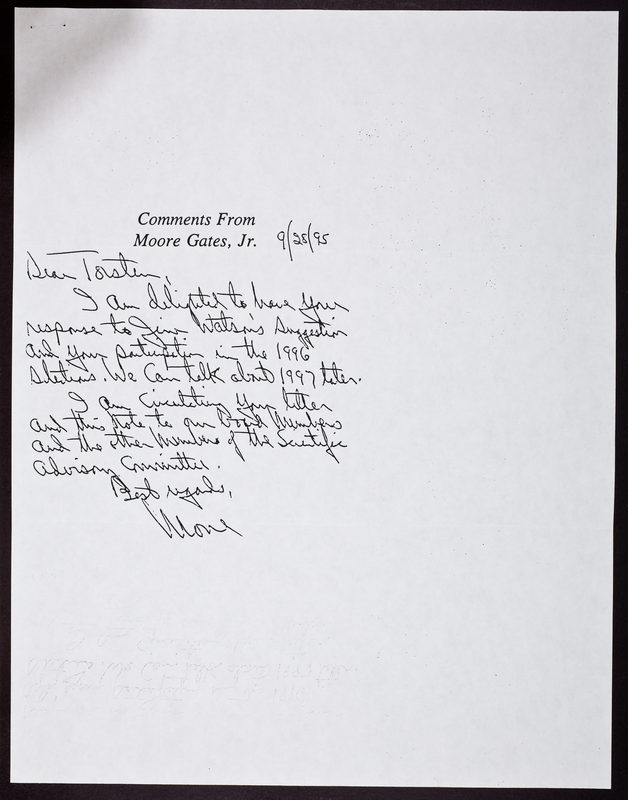 Comments From
Moore Gates, Jr. 9/28/95
Dear Torsten,
I am delighted to have your
response to Jim Watson's suggestion
and your participation in the 1996
selections. We can talk about 1997 later.
I am circulating your letter
and this note to our Board Members
and the other Members of the Scientific
Advisory Committee.
Best regards,
Moore